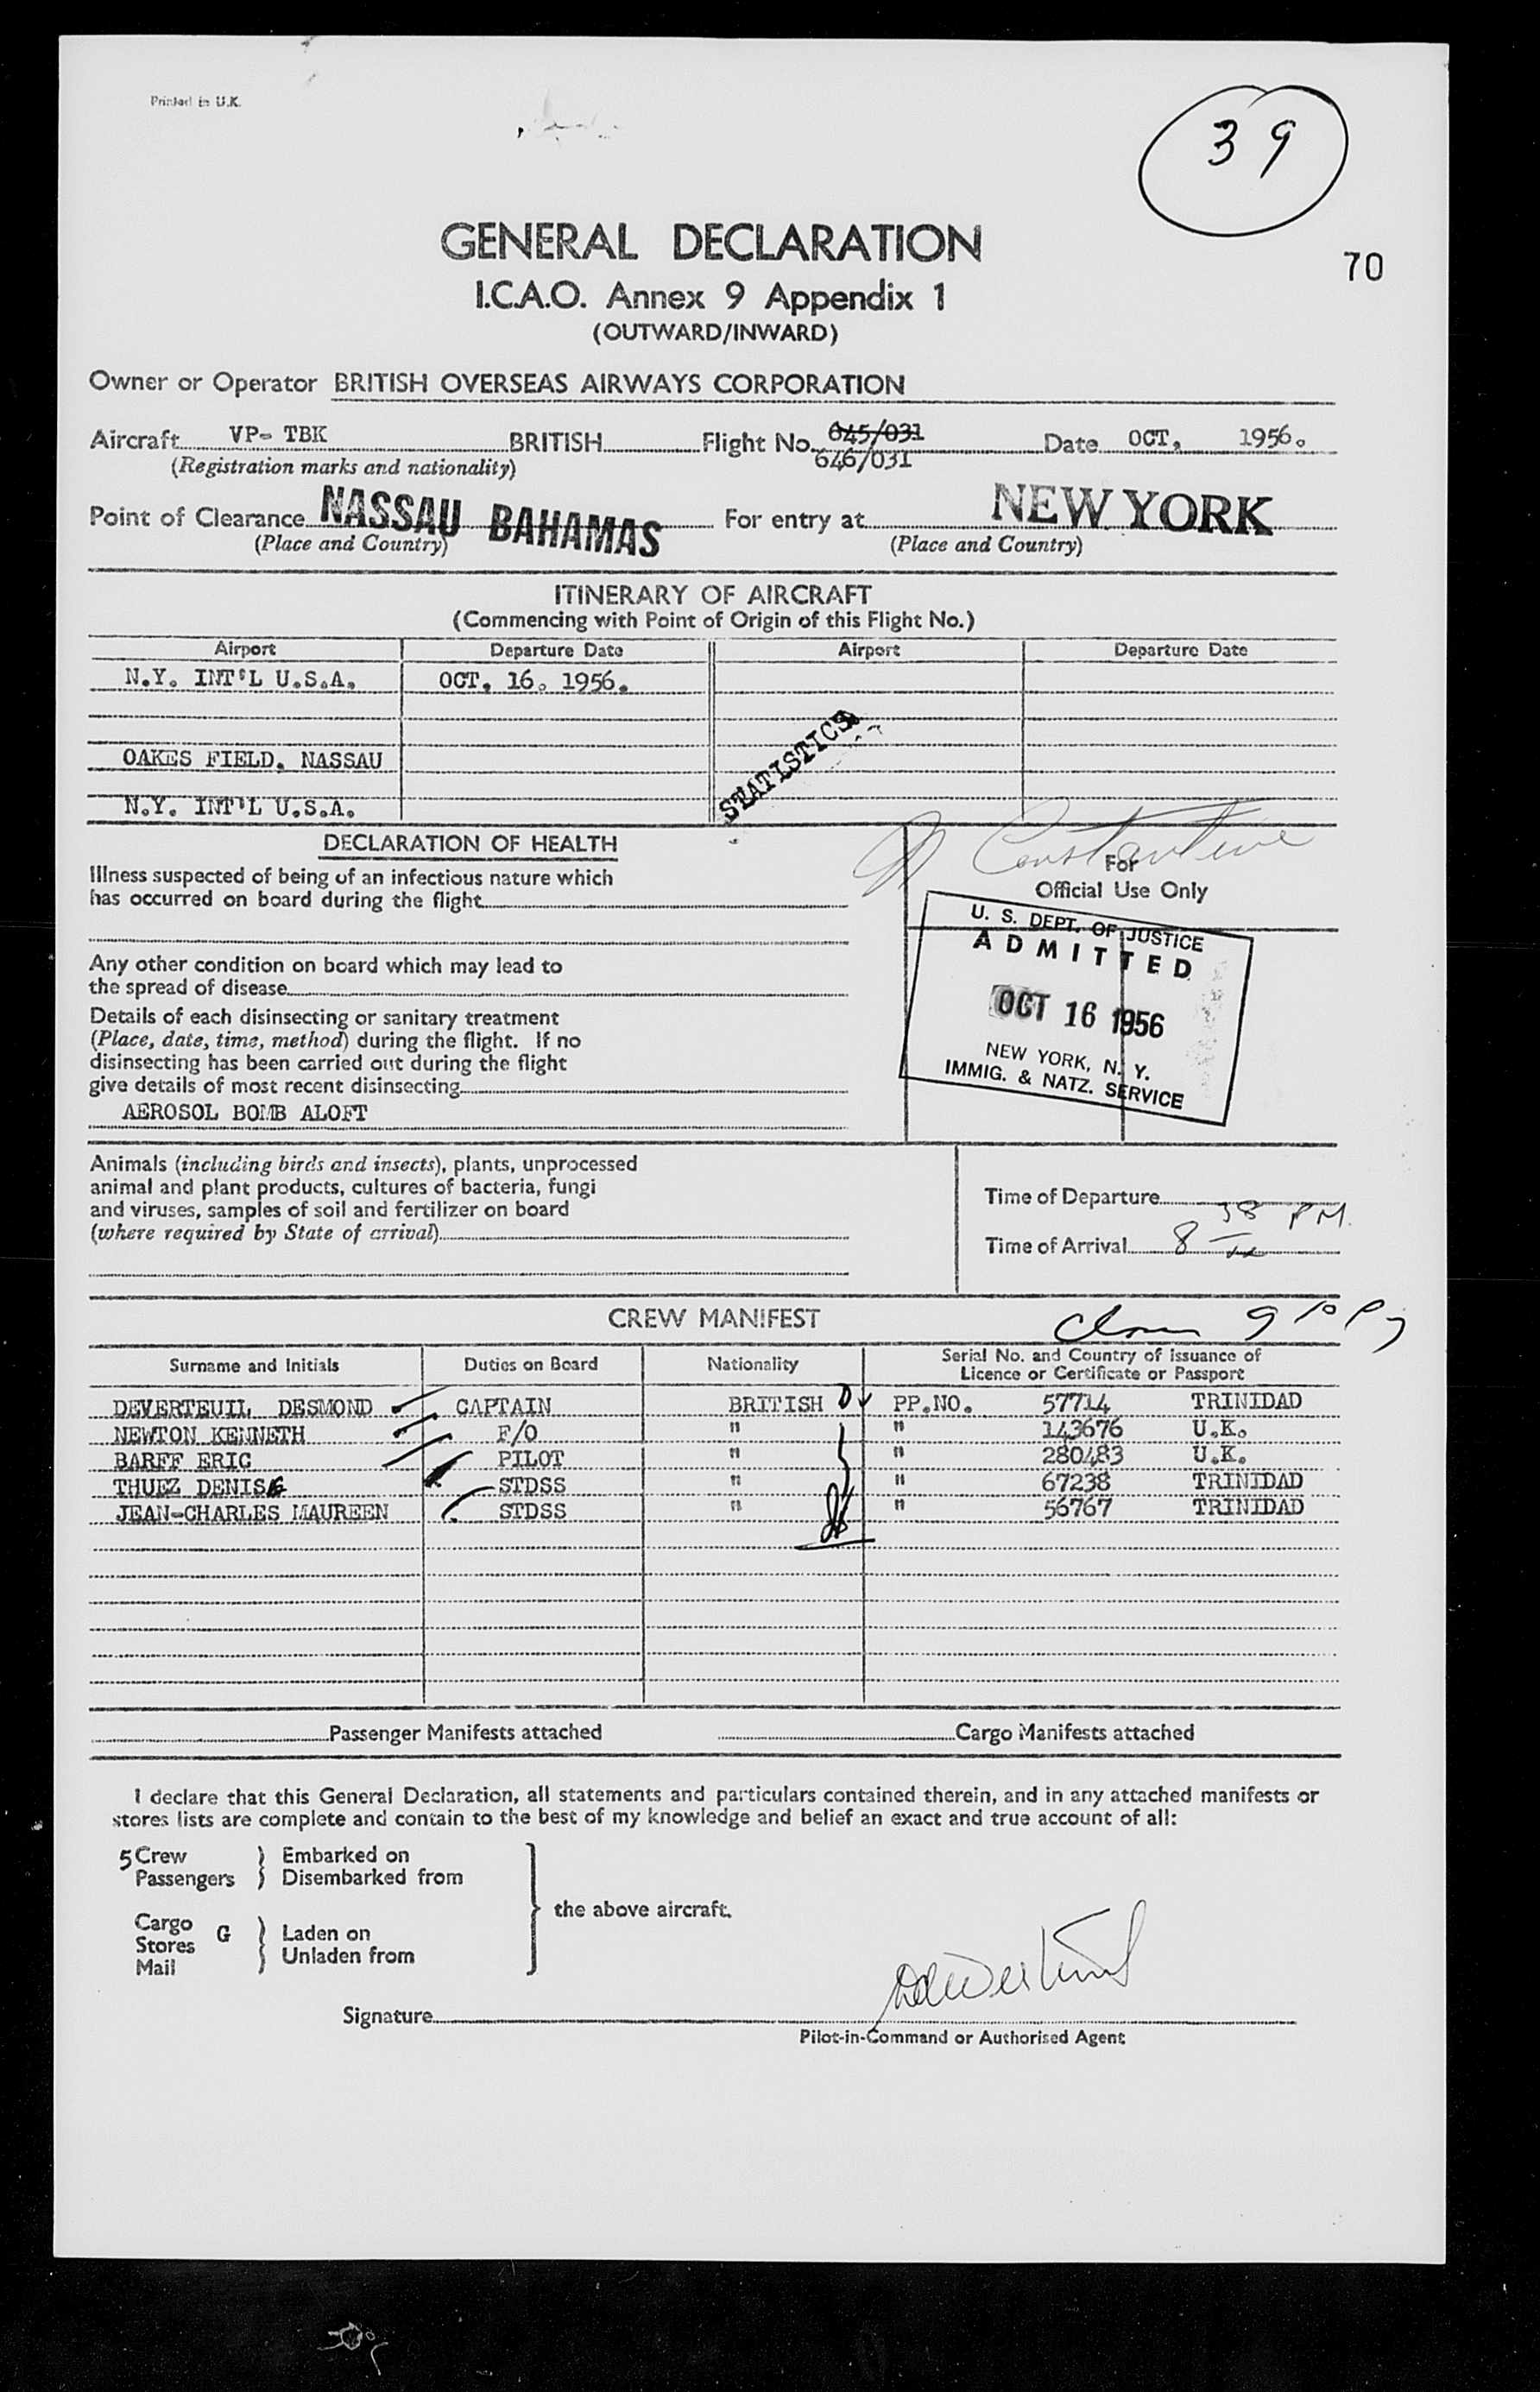 Printed in U.K.
39
GENERAL DECLARATION
70
I.C.A.O. Annex 9 Appendix 1
(OUTWARD/INWARD)
Owner or Operator BRITISH OVERSEAS AIRWAYS CORPORATION
Aircraft VP- TBK BRITISH Flight No. 645/031 Date OCT, 1956.
(Registration marks and nationality) 646/031
Point of Clearance NASSAU BAHAMAS For entry at NEW YORK
(Place and Country) (Place and Country)
ITINERARY OF AIRCRAFT
(Commencing with Point of Origin of this Flight No.)
Airport Departure Date Airport Departure Date
N.Y. INT'L U.S.A. OCT. 16. 1956.
STATISTICS
OAKES FIELD. NASSAU
N.Y. INT'L U.S.A.
DECLARATION OF HEALTH
Constantine
For
Official Use Only
Illness suspected of being of an infectious nature which
has occurred on board during the flight
U. S. DEPT. OF JUSTICE
ADMITTED
OCT 16 1956
NEW YORK, N. Y.
IMMIG. & NATZ. SERVICE
Any other condition on board which may lead to
the spread of disease
Details of each disinsecting or sanitary treatment
(Place, date, time, method) during the flight. If no
disinsecting has been carried out during the flight
give details of most recent disinsecting
AEROSOL BOMB ALOFT
Animals (including birds and insects), plants, unprocessed
animal and plant products, cultures of bacteria, fungi
and viruses, samples of soil and fertilizer on board
(where required by State of arrival)
Time of Departure
Time of Arrival 8 38 PM.
CREW MANIFEST
Surname and Initials Duties on Board Nationality Serial No. and Country of Issuance of
Licence or Certificate or Passport
DEVERTEUIL DESMOND CAPTAIN BRITISH PP.NO. 57714 TRINIDAD
NEWTON KENNETH F/O " " 143676 U.K.
BARFF ERIC PILOT " " 280483 U.K.
THUEZ DENISE STDSS " " 67238 TRINIDAD
JEAN-CHARLES MAUREEN STDSS " " 56767 TRINIDAD
Passenger Manifests attached Cargo Manifests attached
I declare that this General Declaration, all statements and particulars contained therein, and in any attached manifests or
stores lists are complete and contain to the best of my knowledge and belief an exact and true account of all:
5 Crew Embarked on
Passengers Disembarked from
the above aircraft.
Cargo G Laden on
Stores
Mail Unladen from
Signature
Pilot-in-Command or Authorised Agent